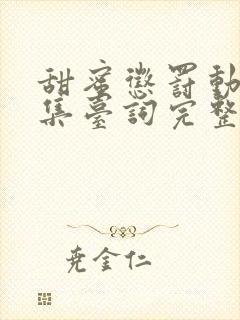 甜蜜懲罰動
集臺詞完整
尭金仁